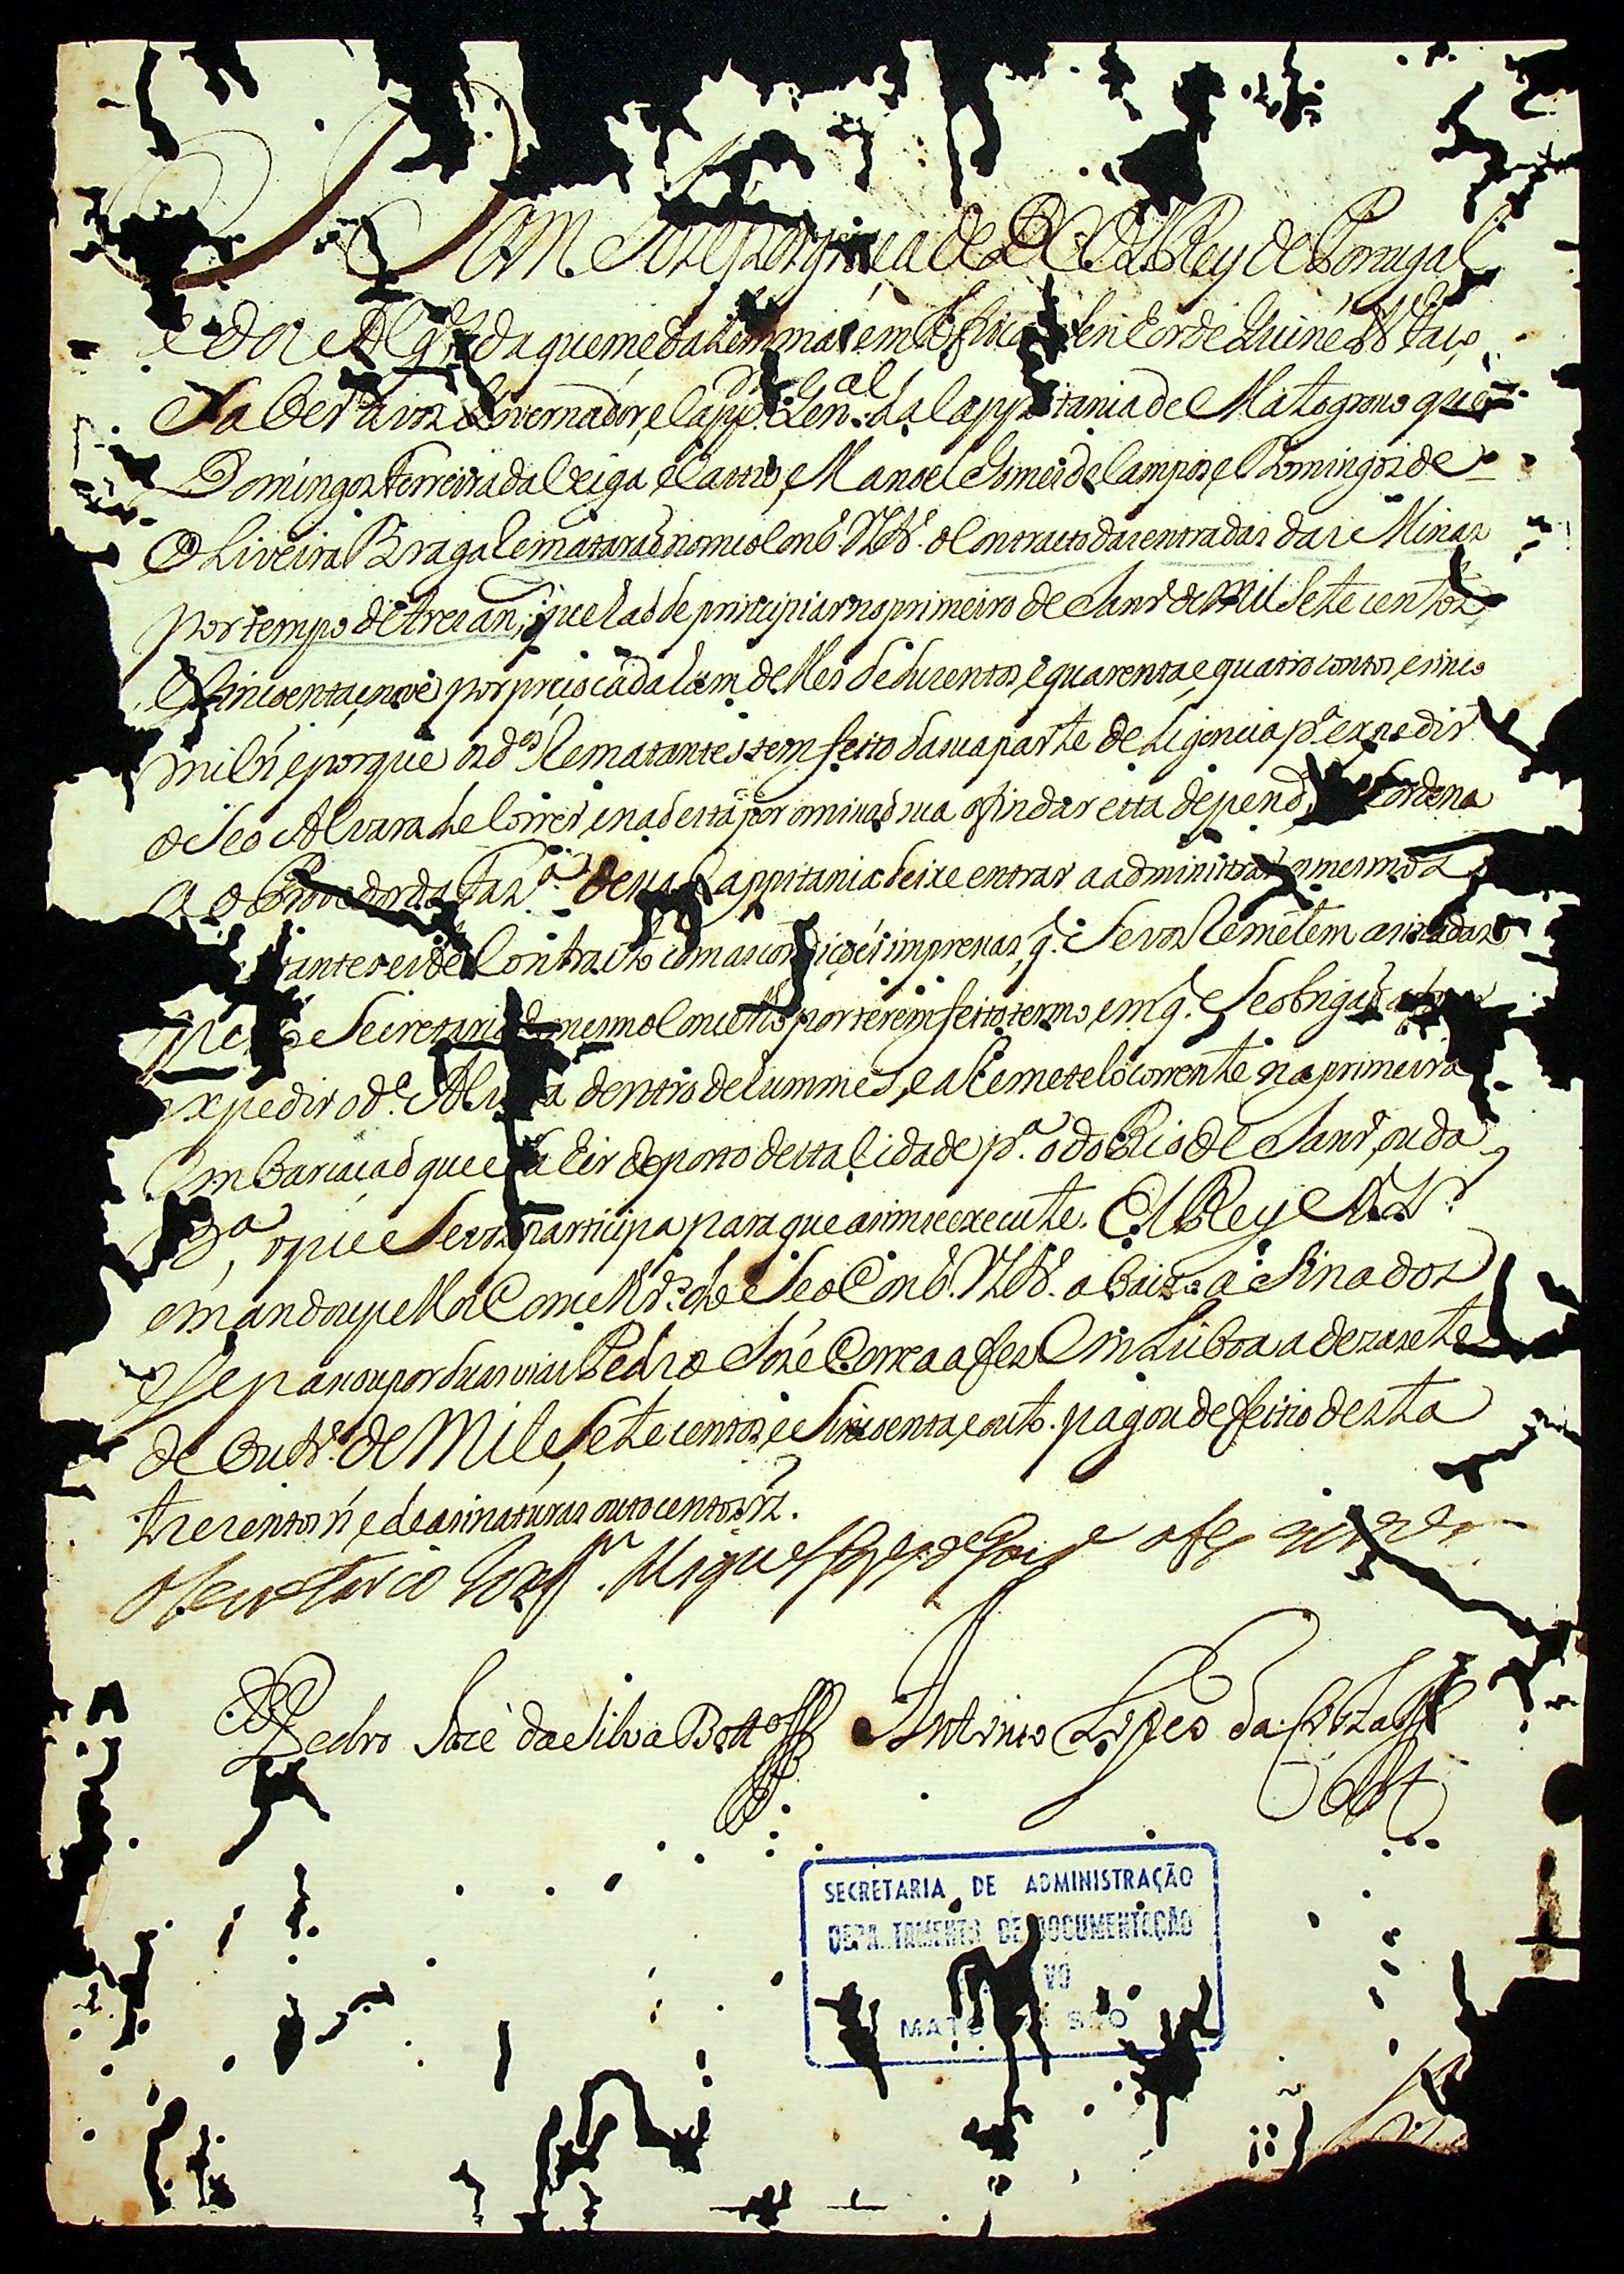 DOM Joze por graça de D.s Rey de Portugal
e dos Alg.es daquem e dalem mar em Africa Sen.or de Guiné &.ª Faço
Saber a vos Governador, e Capp.am Gen.al da Cappitania de Matogroso que
Domingos Ferreira da Veiga, e Castro, Manoel Gomes de Campos, e Domingos de
Oliveira Braga Rematarão no meo Cons.º Ultr.º o Contracto das entradas das Minas
por tempo de tres an.s que hao de principiar no primeiro de Janr.º de Mil Sete centos
e sincoenta, e nove por preço cada hum delles de duzentos, e quarenta, e quatro contos, e sinco
mil rs e porque os d.os Rematantes tem feito da sua parte deligencia p.ª expedir
o Seo Alvara de Correr, e não está por omissão sua o findar esta depend Ordena
ao Provedor da Faz.ª desa Cappitania deixe entrar a administrar os mesmos
tantes este Contracto com as condições impresas, q. Se vos Remetem asinadas
pelo Secretario do mesmo Concelho por terem feito termo, em q. Se obrigão a
expedir o d.º Alvara dentro de hum mes, e a Remetelo corrente na primeira
Embarcação que sahir do porto desta Cidade p.ª o do Rio de Janr.º, ou da
B.ª, o que Se vos participa para que asim se execute. El Rey N. S.r
o mandou pellos Conselhr.os do Seo Cons.º Ultr.º abaixo asinados
e Se pasou por duas vias Pedro José Correa a fes em Lisboa a dezasete
de Outr.º de Mil e, Sete centos, e Sincoenta, e outo. pagou de feitio desta
trezentos rs e de asinaturas outo centos rs.
O Secretario Joaq.m Miguel Lopes de Lavre a fes escrever
Pedro José da Silva Botto Antonio Lopes da Costa
SECRETARIA DE ADMINISTRAÇÃO
DEPA TAMENTO DE DOCUMENTAÇÃO
VO
MATO SSO